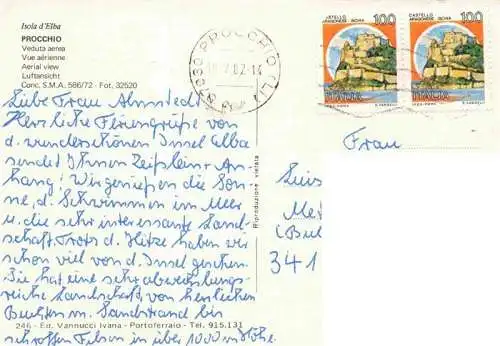 Isola d'Elba
PROCCHIO
Veduta aerea
Vue aérienne
Aerial view
Luftansicht
Conc. S.M.A. 586/72 - Fot. 32520
PROCCHIO (LI)
CASTELLO
ARAGONESE ISCHIA
100
ITALIA
CASTELLO
ARAGONESE ISCHIA
100
ITALIA
Liebe Frau Almstedt
Herzliche Feriengrüße von
d. wunderschönen Insel Elba
sendet Ihnen + An-
hang! Wir genießen die Son-
ne, d. Schwimmen im Meer
u. die sehr interessante Land-
schaft. Trots d. Hitze haben wir
schon viel von d. Insel gesehen.
Sie hat eine sehr abwechslungs-
reiche Landschaft, von herrlichen
Buchten m. Sandstrand bis
schroffen Felsen in über 1000 m Höhe.
Frau
Luis
341
Riproduzione vietata
246 - Ed. Vannucci Ivana - Portoferraio - Tel. 915.131